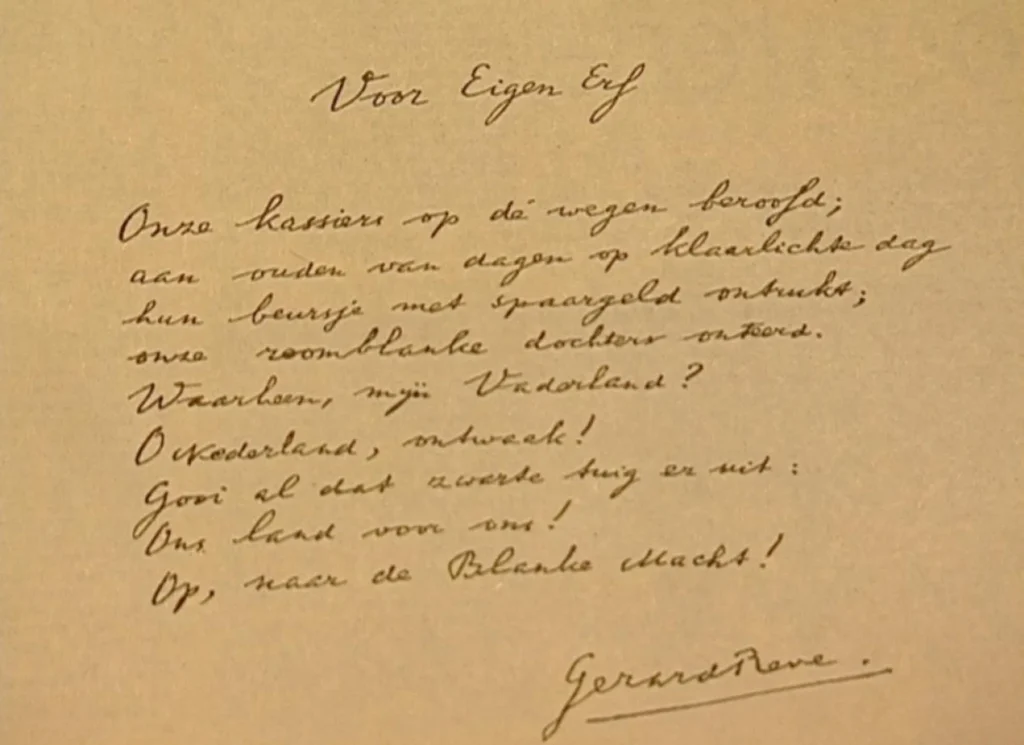 Voor Eigen Erf
Onze kassiers op de wegen beroofd;
aan ouden van dagen op klaarlichte dag
hun beursje met spaargeld ontrukt;
onze roomblanke dochters onteerd.
Waarheen, mijn Vaderland?
O Nederland, ontwaak!
Gooi al dat zwarte tuig er uit:
Ons land voor ons!
Op, naar de Blanke Macht!
Gerard Reve.